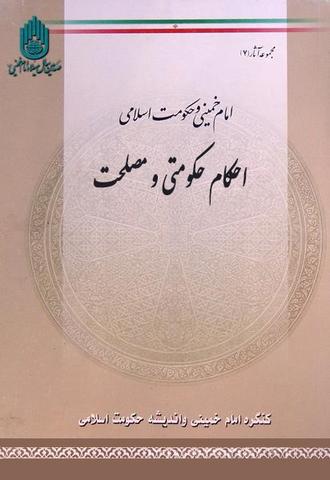 مجموعه آثار (۷)
امام خمینی و حکومت اسلامی
احکام حکومتی و مصلحت
کنگره امام خمینی و اندیشه حکومت اسلامی